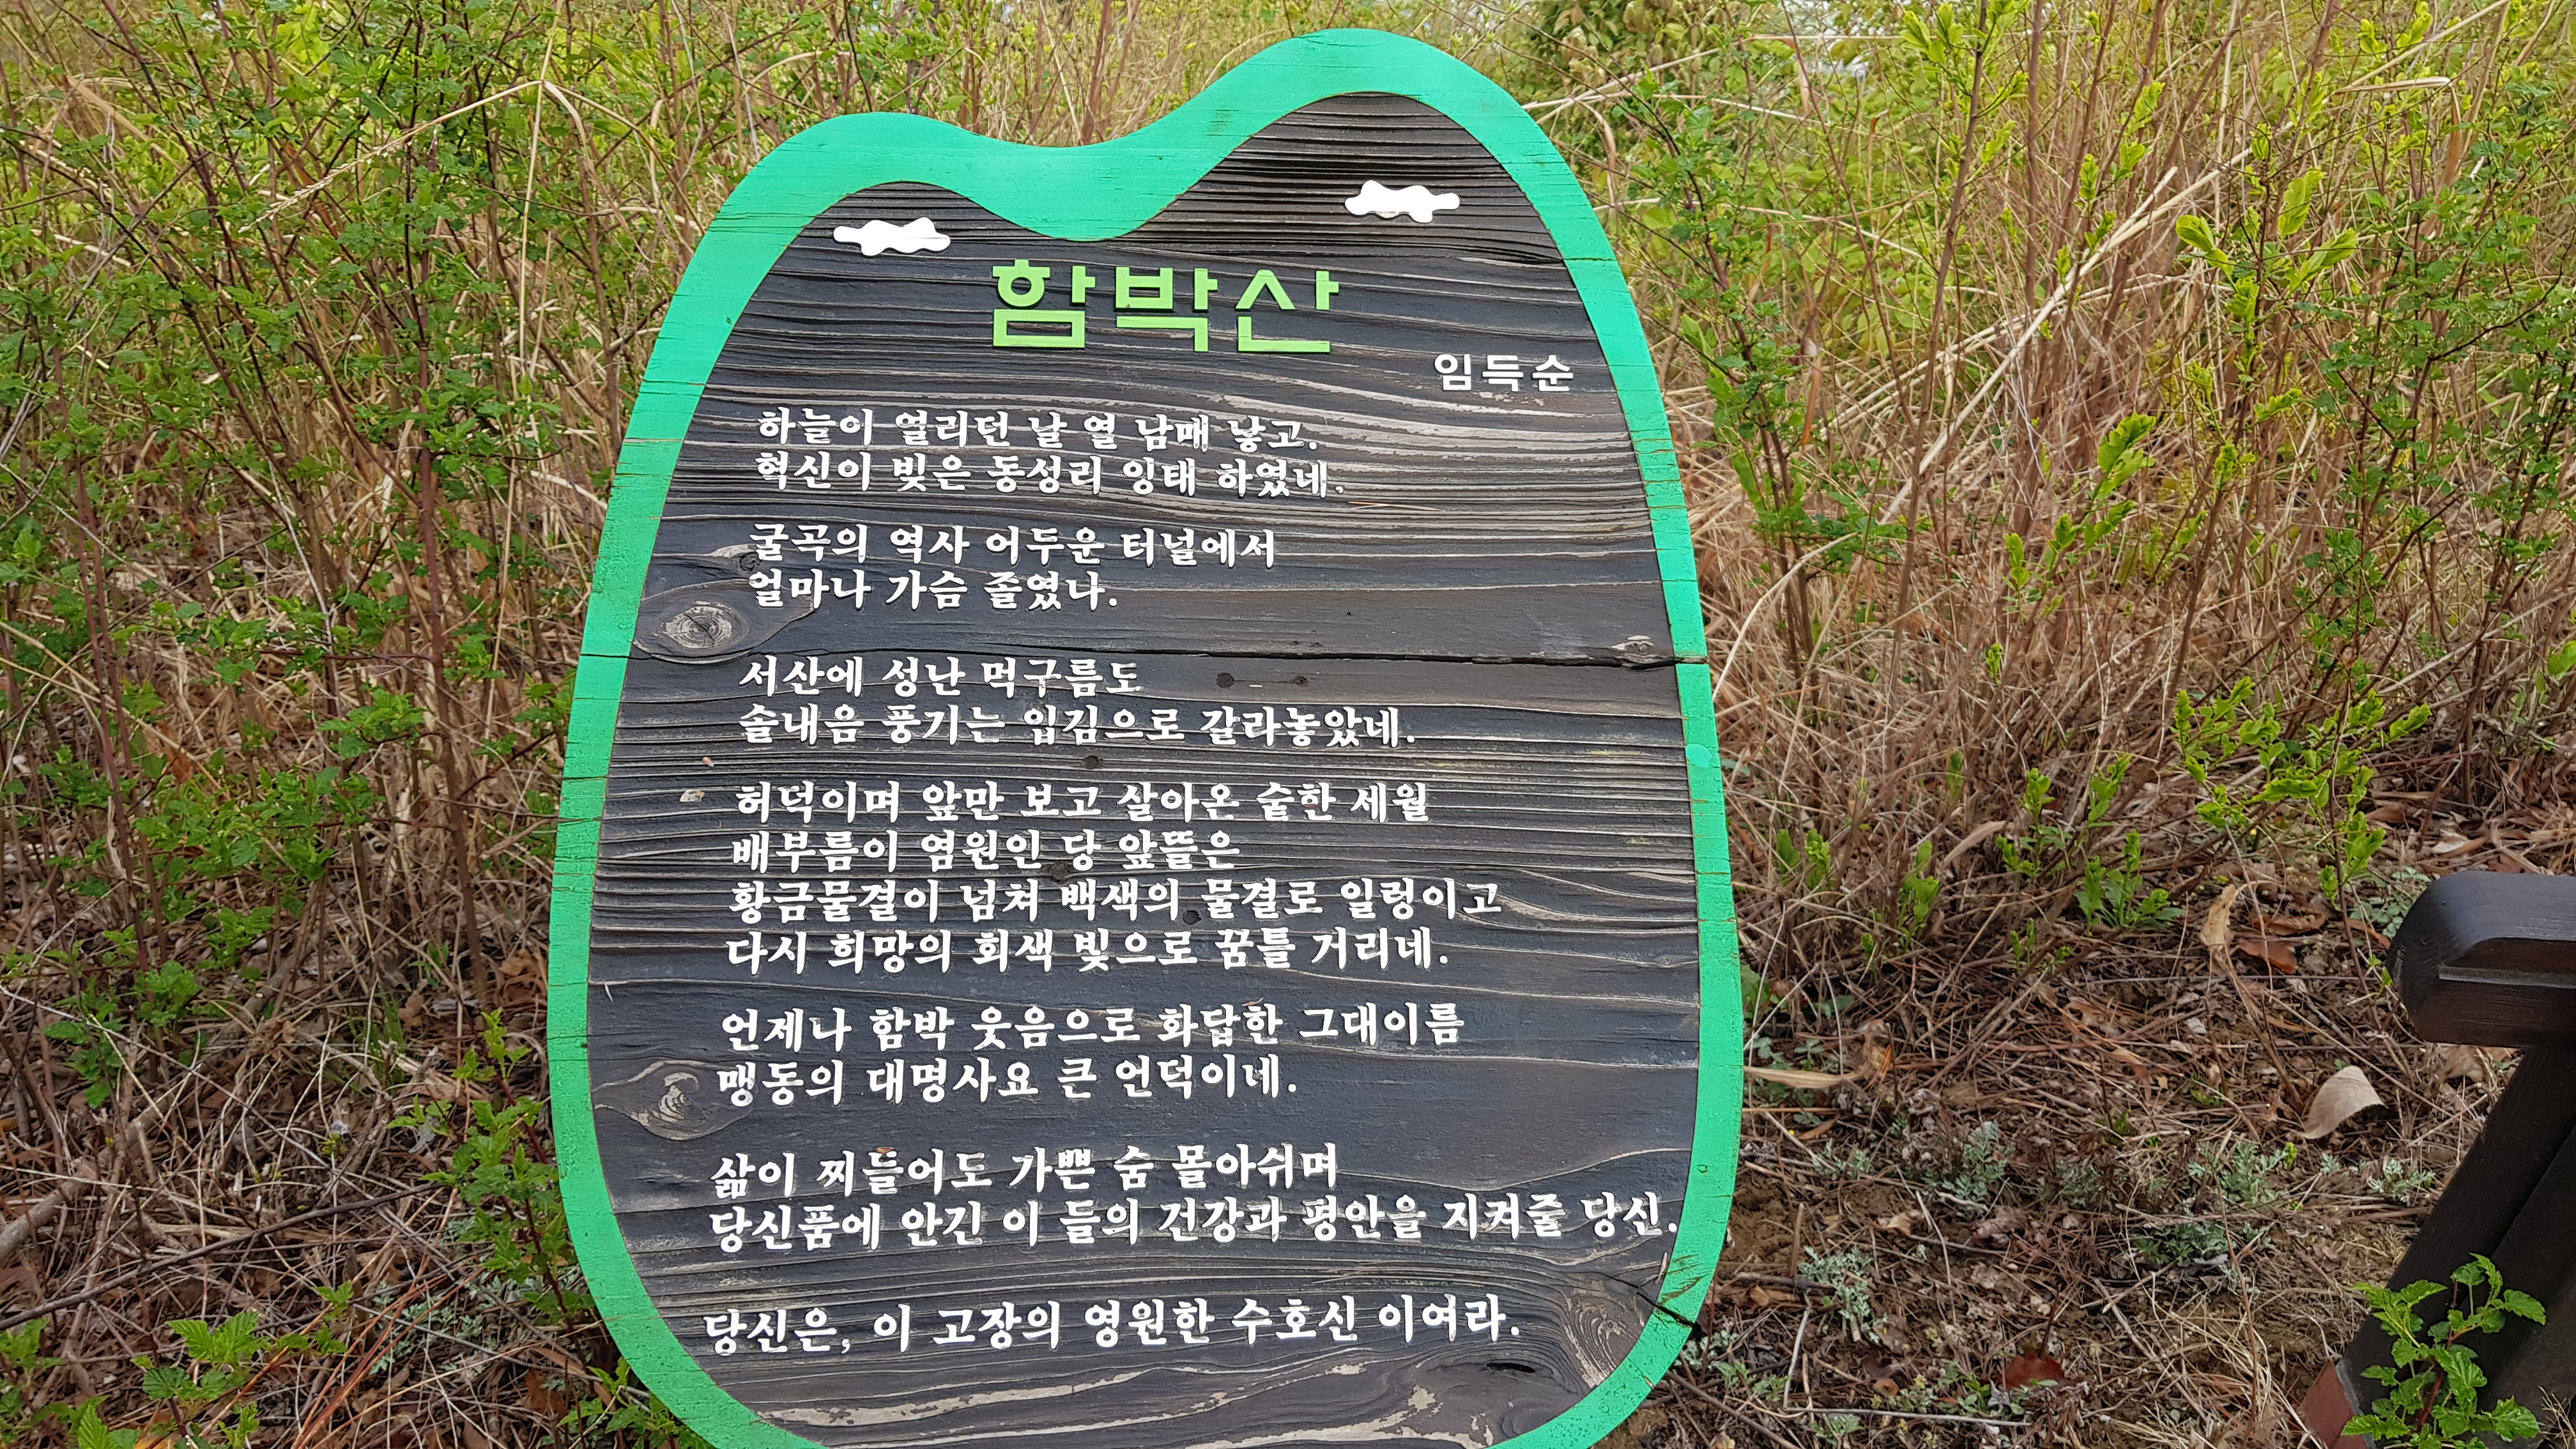 함박산
임득순
하늘이 열리던 날 열 남매 낳고.
혁신이 빚은 동성리 잉태 하였네.
굴곡의 역사 어두운 터널에서
얼마나 가슴 졸였나.
서산에 성난 먹구름도
솔내음 풍기는 입김으로 갈라놓았네.
허덕이며 앞만 보고 살아온 숱한 세월
배부름이 염원인 당 앞뜰은
황금물결이 넘쳐 백색의 물결로 일렁이고
다시 희망의 회색 빛으로 꿈틀 거리네.
언제나 함박 웃음으로 화답한 그대이름
맹동의 대명사요 큰 언덕이네.
삶이 찌들어도 가쁜 숨 몰아쉬며
당신품에 안긴 이 들의 건강과 평안을 지켜줄 당신.
당신은, 이 고장의 영원한 수호신 이여라.